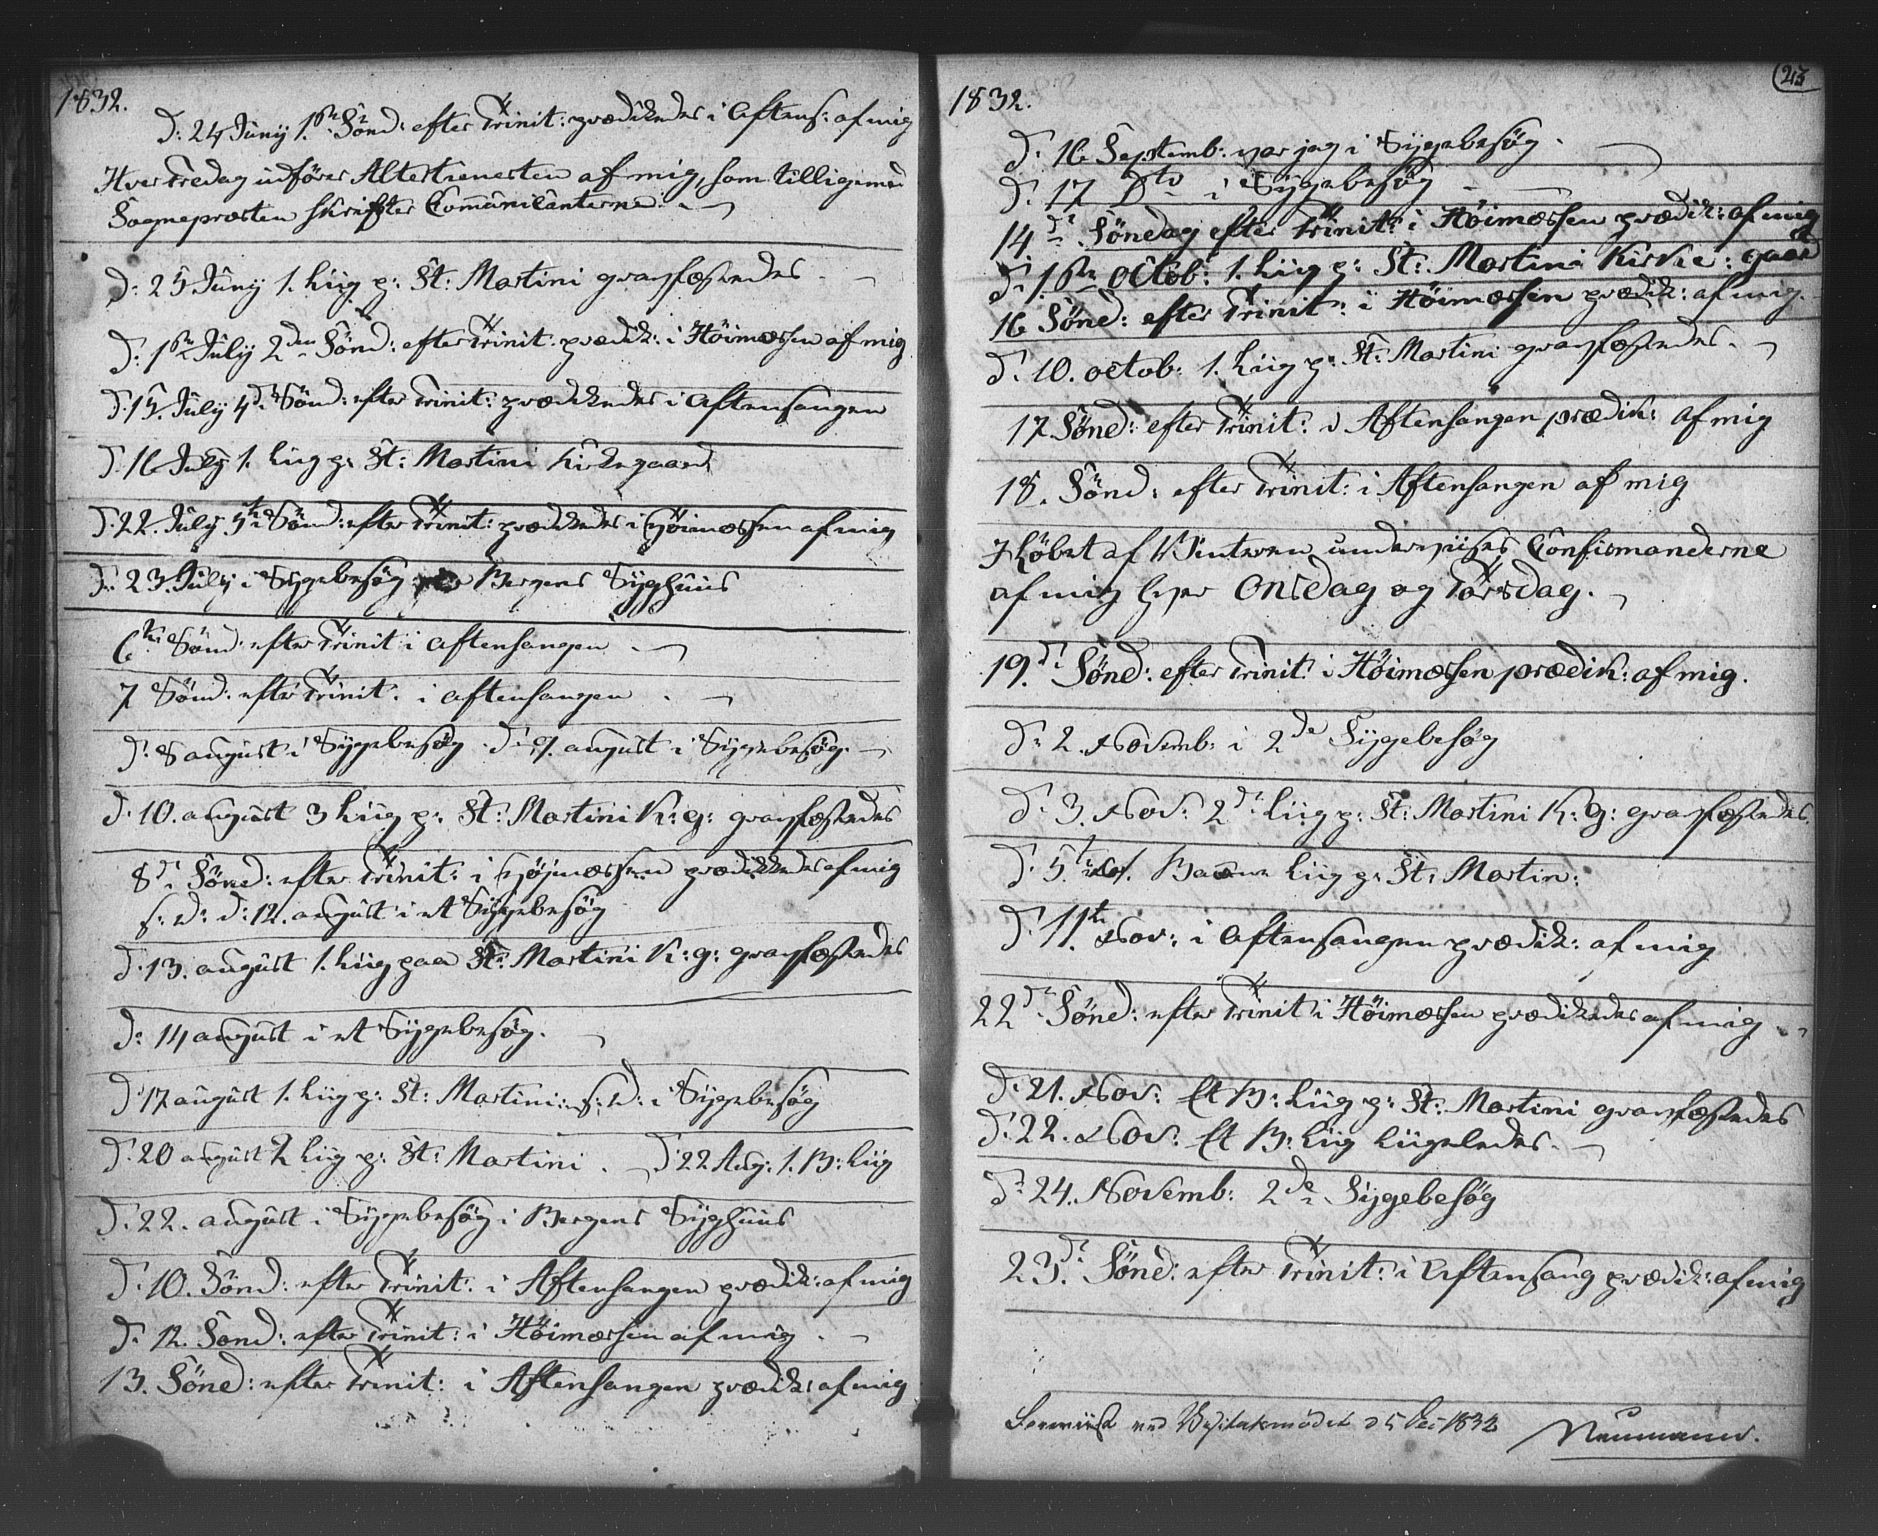 1832.
d: 24 Juny 1ste Sönd: efter Trinit: prædikedes i Aftens: af mig
Hver Fredag udföres Altertienesten af mig, som tilligemed
Sognepræsten skrifter Comunicanterne.
d: 25 Juny 1. Liig p: St: Martini gravfæstedes
d: 1ste July 2den Sönd: efter Trinit: prædik: i Höimæssen af mig
d. 15. July 4de Sönd: efter Trinit: prædikedes i Aftensangen
d. 16 July 1. Liig p: St: Martini Kirkegaard
d. 22. July 5te Sönd: efter Trinit: prædikedes i Höimæssen af mig
d. 23. July i Sÿgebesøg Bergens Sÿghuus
6te Sönd: efter Trinit: i Aftensangen
7 Sönd: efter Trinit: i Aftensangen
d: 8 august i Sÿgebesøg. d: 9. august i Sÿgebesøg.
d. 10. august 3 Liig p: St: Martini K: g: gravfæstedes
8de Sönd: efter Trinit: i Höjmæssen prædikkedes af mig
s: d: d: 12. august i et Sÿgebesøg
d. 13. august 1. Liig paa St: Martini K: g: gravfæstedes
d: 14 august i et Sÿgebesøg.
d. 17 august 1. Liig p: St: Martini: s: d: i Sÿgebesøg
d. 20 august 2 Liig p: St: Martini. d. 22 Aug: 1. B: Liig
d. 22. august i Sÿgebesøg i Bergens Sÿghuus
d. 10. Sönd: efter Trinit: i Aftensangen prædik: af mig
d. 12. Sönd: efter Trinit: i Höimæssen af mig
13. Sönd: efter Trinit: i Aftensangen prædik: af mig
213
1832.
d. 16 Septemb: var jag i Sÿgebesøg.
d. 17 Dto i Sÿgebesøg
14de Söndag efter Trinit: i Höimæssen prædik: af mig
d. 1ste Octob: 1. Liig p: St: Martini Kirke: gaard
16 Sönd: efter Trinit: i Höimæssen prædik: af mig.
d. 10. octob: 1. Liig p: St: Martini gravfæstedes.
17 Sönd: efter Trinit: i Aftensangen prædik: af mig
18. Sönd: efter Trinit: i Aftensangen af mig
I Löbet af Vinteren underviises Confirmanderne
af mig hver Onsdag og Torsdag.
19.de Sönd: efter Trinit: i Höimæssen prædik: af mig.
d. 2. Novemb: i 2de Sÿgebesøg
d. 3. Nov: 2de Liig p: St: Martini K: g: gravfæstedes.
d. 5te Nov. Barne Liig p: St: Martin:
d. 11te Nov: i Aftensangen prædik: af mig
22de Sönd: efter Trinit: i Höimæssen prædikedes af mig
d. 21. Nov: Et B: Liig p: St: Martini gravfæstedes
d. 22. Nov: Et B: Liig Liigeledes.
d. 24. Novemb: 2de Sÿgebesøg
23.de Sönd: efter Trinit: i Aftensang prædik: af mig
Foreviist ved d 5 Dec 1832
Neumann.